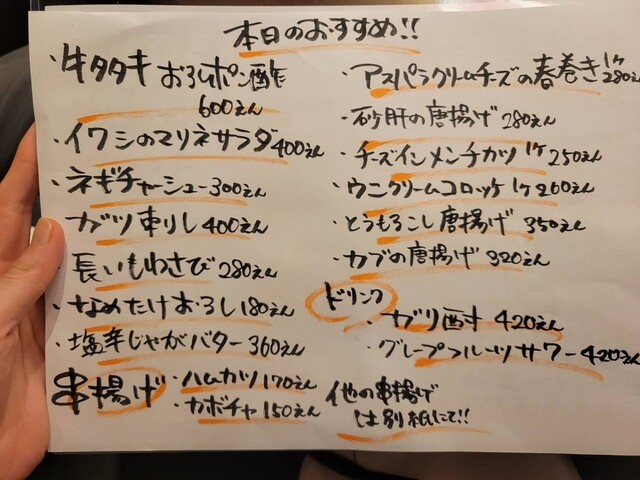 本日のおすすめ!!
・牛タタキ おろしポン酢
600えん
・イワシのマリネサラダ 400えん
・ネギチャーシュー 300えん
・ガツ刺し 400えん
・長いもわさび 280えん
・なめたけおろし 180えん
・塩辛じゃがバター 360えん
串揚げ
・ハムカツ 170えん
・カボチャ 150えん
・アスパラクリームチーズの春巻き 1ケ 280えん
・砂肝の唐揚げ 280えん
・チーズインメンチカツ 1ケ 250えん
・ウニクリームコロッケ 1ケ 260えん
・とうもろこし唐揚げ 350えん
・カブの唐揚げ 320えん
ドリンク
・ガリ酎 420えん
・グレープフルーツサワー 420えん
他の串揚げ
は別紙にて!!